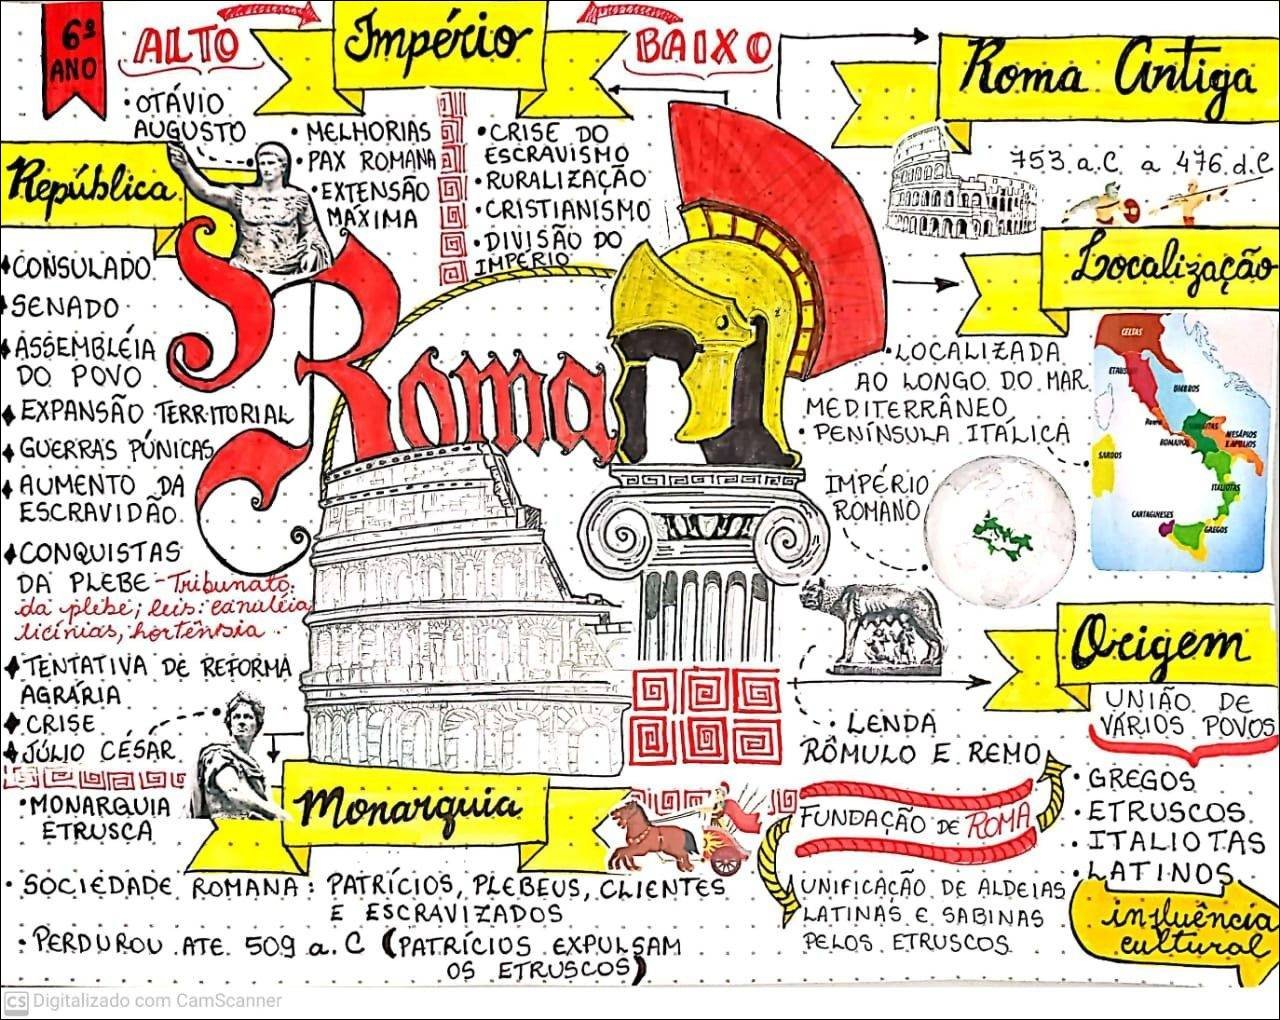 6º
ANO
ALTO
Império
BAIXO
• OTÁVIO
AUGUSTO
• MELHORIAS
• PAX ROMANA
• EXTENSÃO
MÁXIMA
• CRISE DO
ESCRAVISMO
• RURALIZAÇÃO
• CRISTIANISMO
• DIVISÃO DO
IMPÉRIO
Roma Antiga
753 a.C a 476 d.C
República
CONSULADO
SENADO
ASSEMBLÉIA
DO POVO
EXPANSÃO TERRITORIAL
GUERRAS PÚNICAS
AUMENTO DA
ESCRAVIDÃO
CONQUISTAS
DA PLEBE - Tribunato
da plebe; leis: canuléia
licínias, hortênsia
TENTATIVA DE REFORMA
AGRÁRIA
CRISE
JÚLIO CÉSAR
Roma
Localização
• LOCALIZADA
AO LONGO DO MAR
MEDITERRÂNEO
• PENÍNSULA ITÁLICA
IMPÉRIO
ROMANO
CELTAS
ÚMBRIOS
Roma
SARDOS
ITALIOTAS
CARTAGINESES
GREGOS
Origem
UNIÃO DE
VÁRIOS POVOS
• GREGOS
• ETRUSCOS
• ITALIOTAS
• LATINOS
influência
cultural
• LENDA
RÔMULO E REMO
FUNDAÇÃO DE ROMA
UNIFICAÇÃO DE ALDEIAS
LATINAS E SABINAS
PELOS ETRUSCOS
Monarquia
• MONARQUIA
ETRUSCA
• SOCIEDADE ROMANA: PATRÍCIOS, PLEBEUS, CLIENTES
E ESCRAVIZADOS
• PERDUROU ATE 509 a.C (PATRÍCIOS EXPULSAM
OS ETRUSCOS)
CS Digitalizado com CamScanner